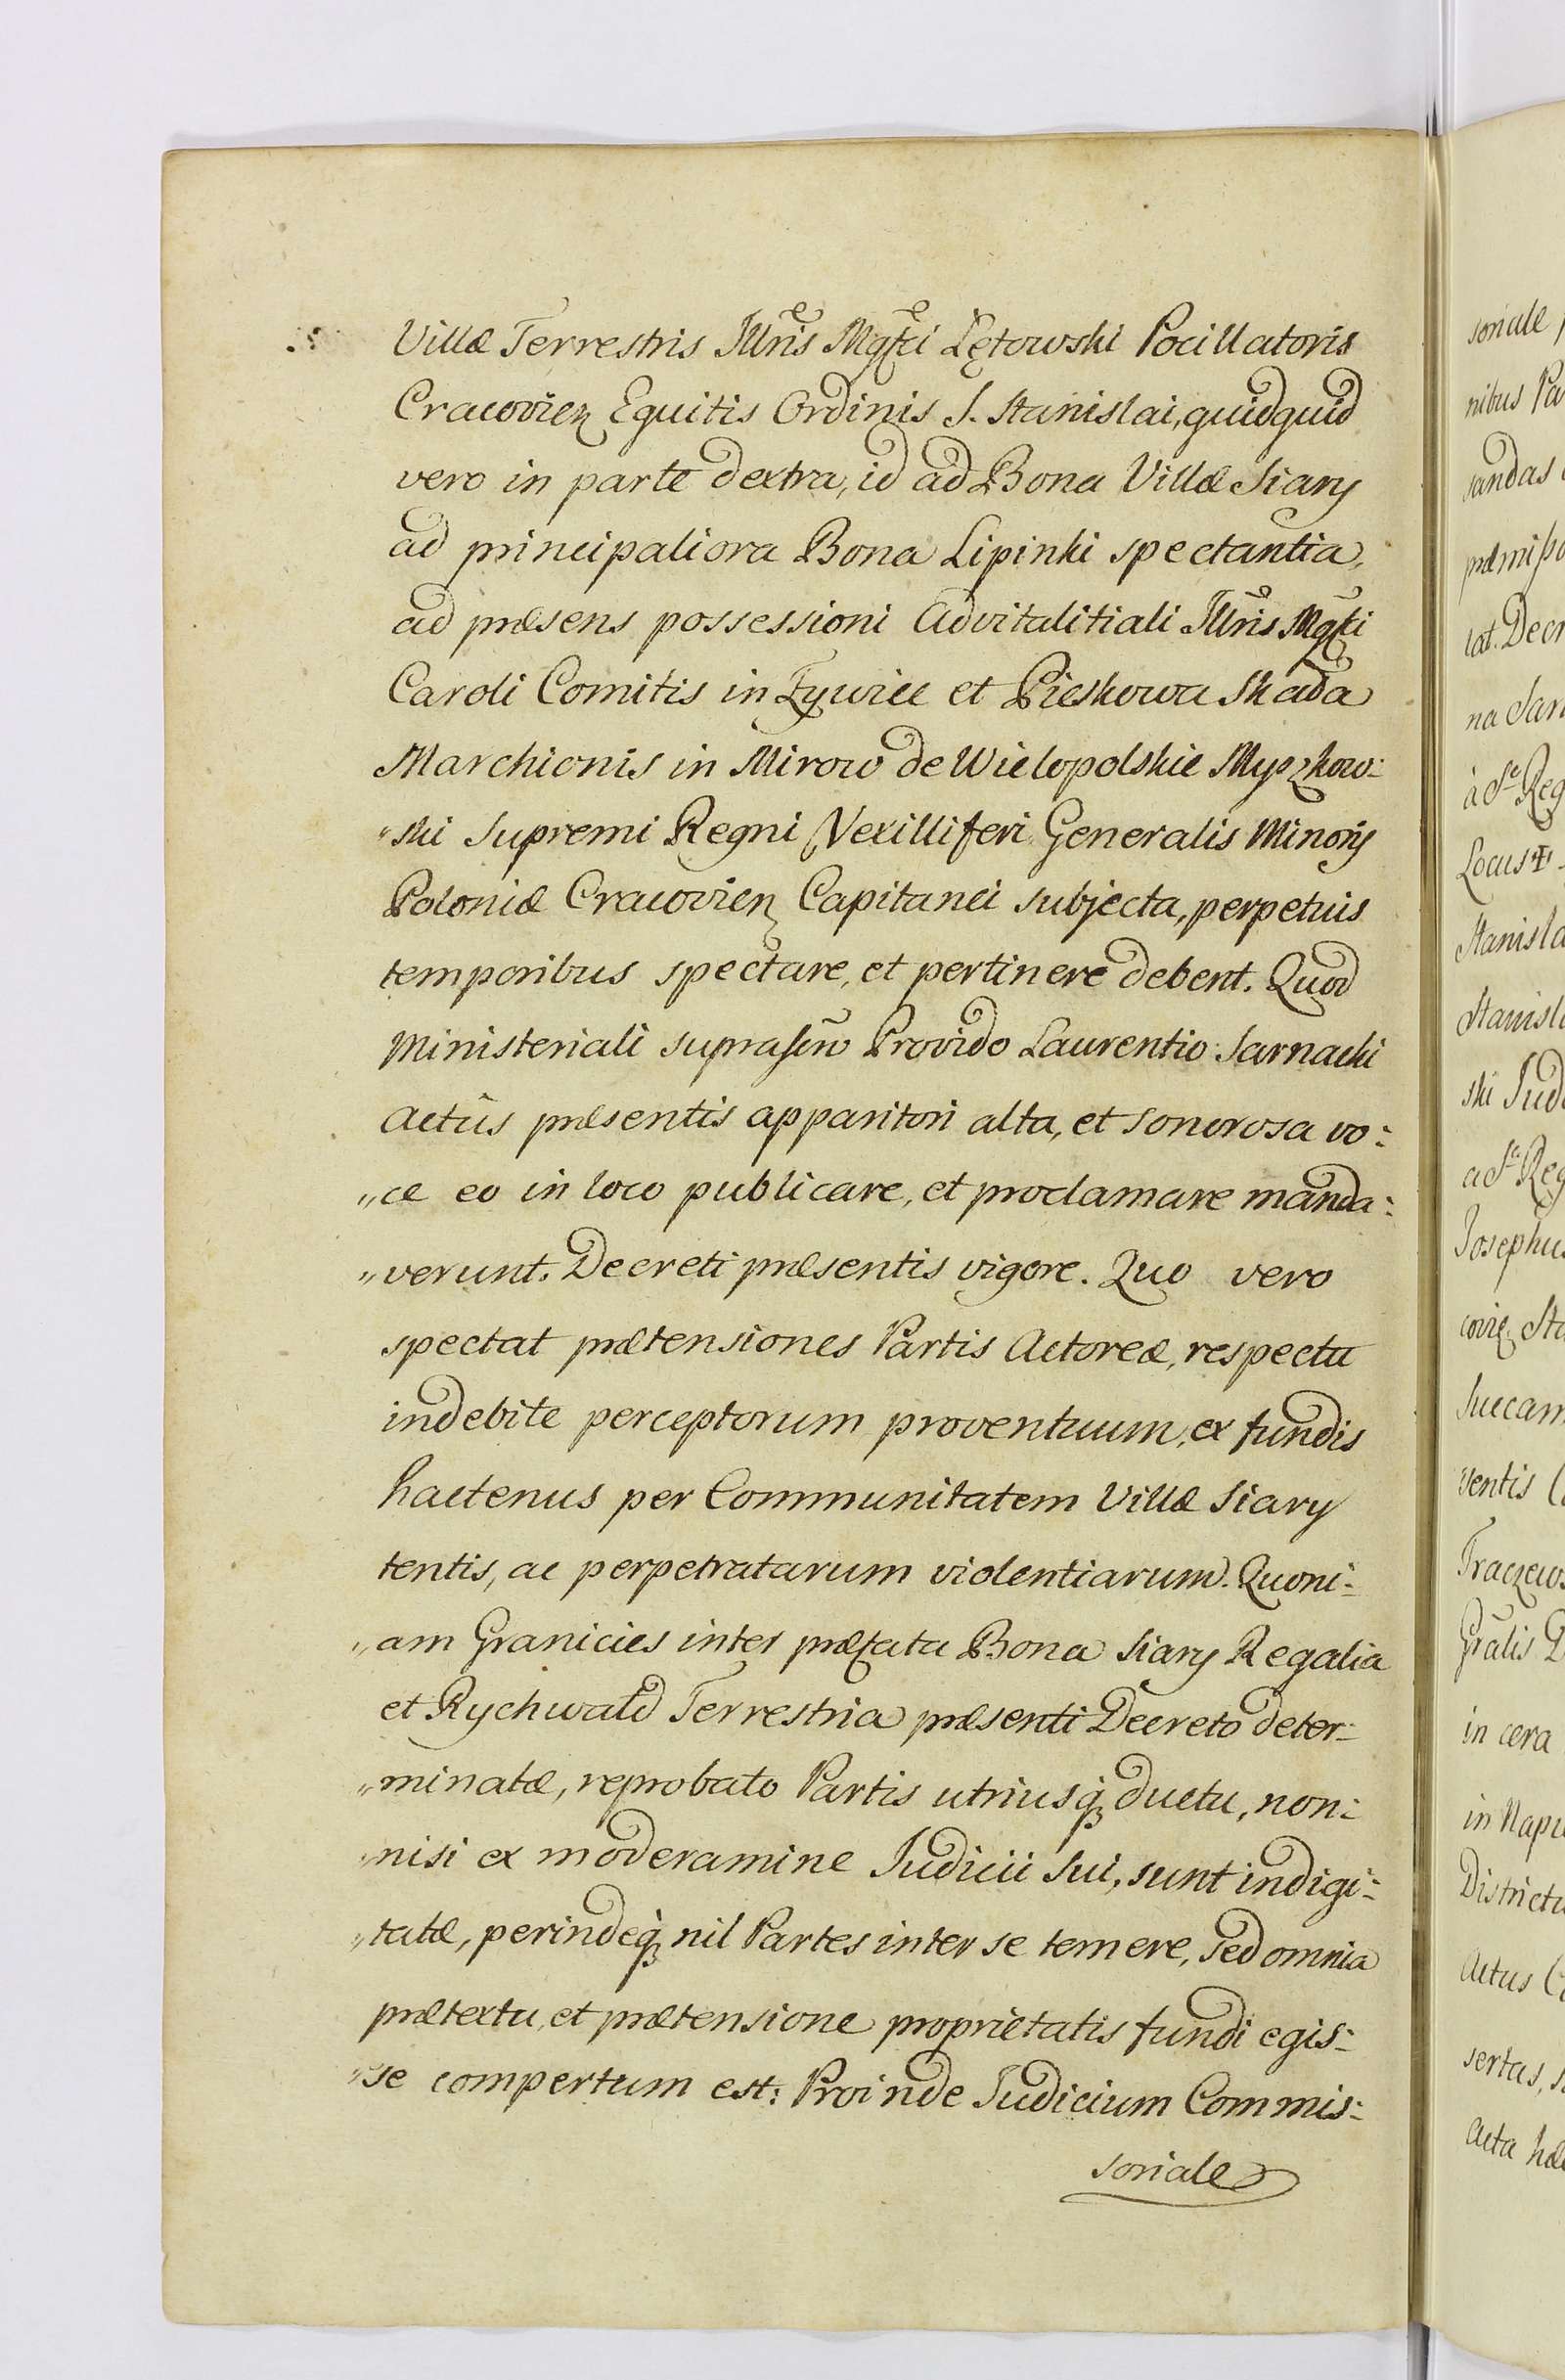 Villæ Terrestris Illris Mgfci Lętowski Pocillatoris
Cracovien Equitis Ordinis S. Stanislai, quidquid
vero in parte dextra, id ad Bona Villæ Siary
ad principaliora Bona Lipinki spectantia,
ad præsens possessioni Advitalitiali Illris Mgfci
Caroli Comitis in Zywiec et Pieskowa Skała
Marchionis in Mirow de Wielopolskie Myszkow:
"ski Supremi Regni Vexilliferi Generalis Minoris
Poloniæ Cracovien Capitanei subjecta, perpetuis
temporibus spectare, et pertinere debent. Quod
Ministeriali suprascrto Provido Laurentio Sarnacki
actûs præsentis apparitori alta, et sonorosa vo:
"ce eo in loco publicare, et proclamare manda:
"verunt. Decreti præsentis vigore. Quo vero
spectat prætensiones Partis Actoreæ, respectu
indebite perceptorum proventuum, ex fundis
hactenus per Communitatem Villæ Siary
tentis, ac perpetratarum violentiarum. Quoni:
"am Granicies inter præfata Bona Siary Regalia
et Rychwałd Terrestria præsenti Decreto deter:
"minatæ, reprobato Partis utriusq; ductu, non:
"nisi ex moderamine Judicii sui, sunt indigi:
"tatæ, perindeq; nil Partes inter se temere, sed omnia
prætextu, et prætensione proprietatis fundi egis:
"se compertum est: Proinde Judicium Commis:
soriale
soriale
nibus Pa
sandas
præmisso
lat. Decr
na San
à Sa Reg
Locus
Stanisla
Stanisl
ski Jud
a Sa Reg
Josephus
Succam
ventis
Graczews
Gralis
in cera
in Napi
Districtu
Actus
sertas,
Acta hæ